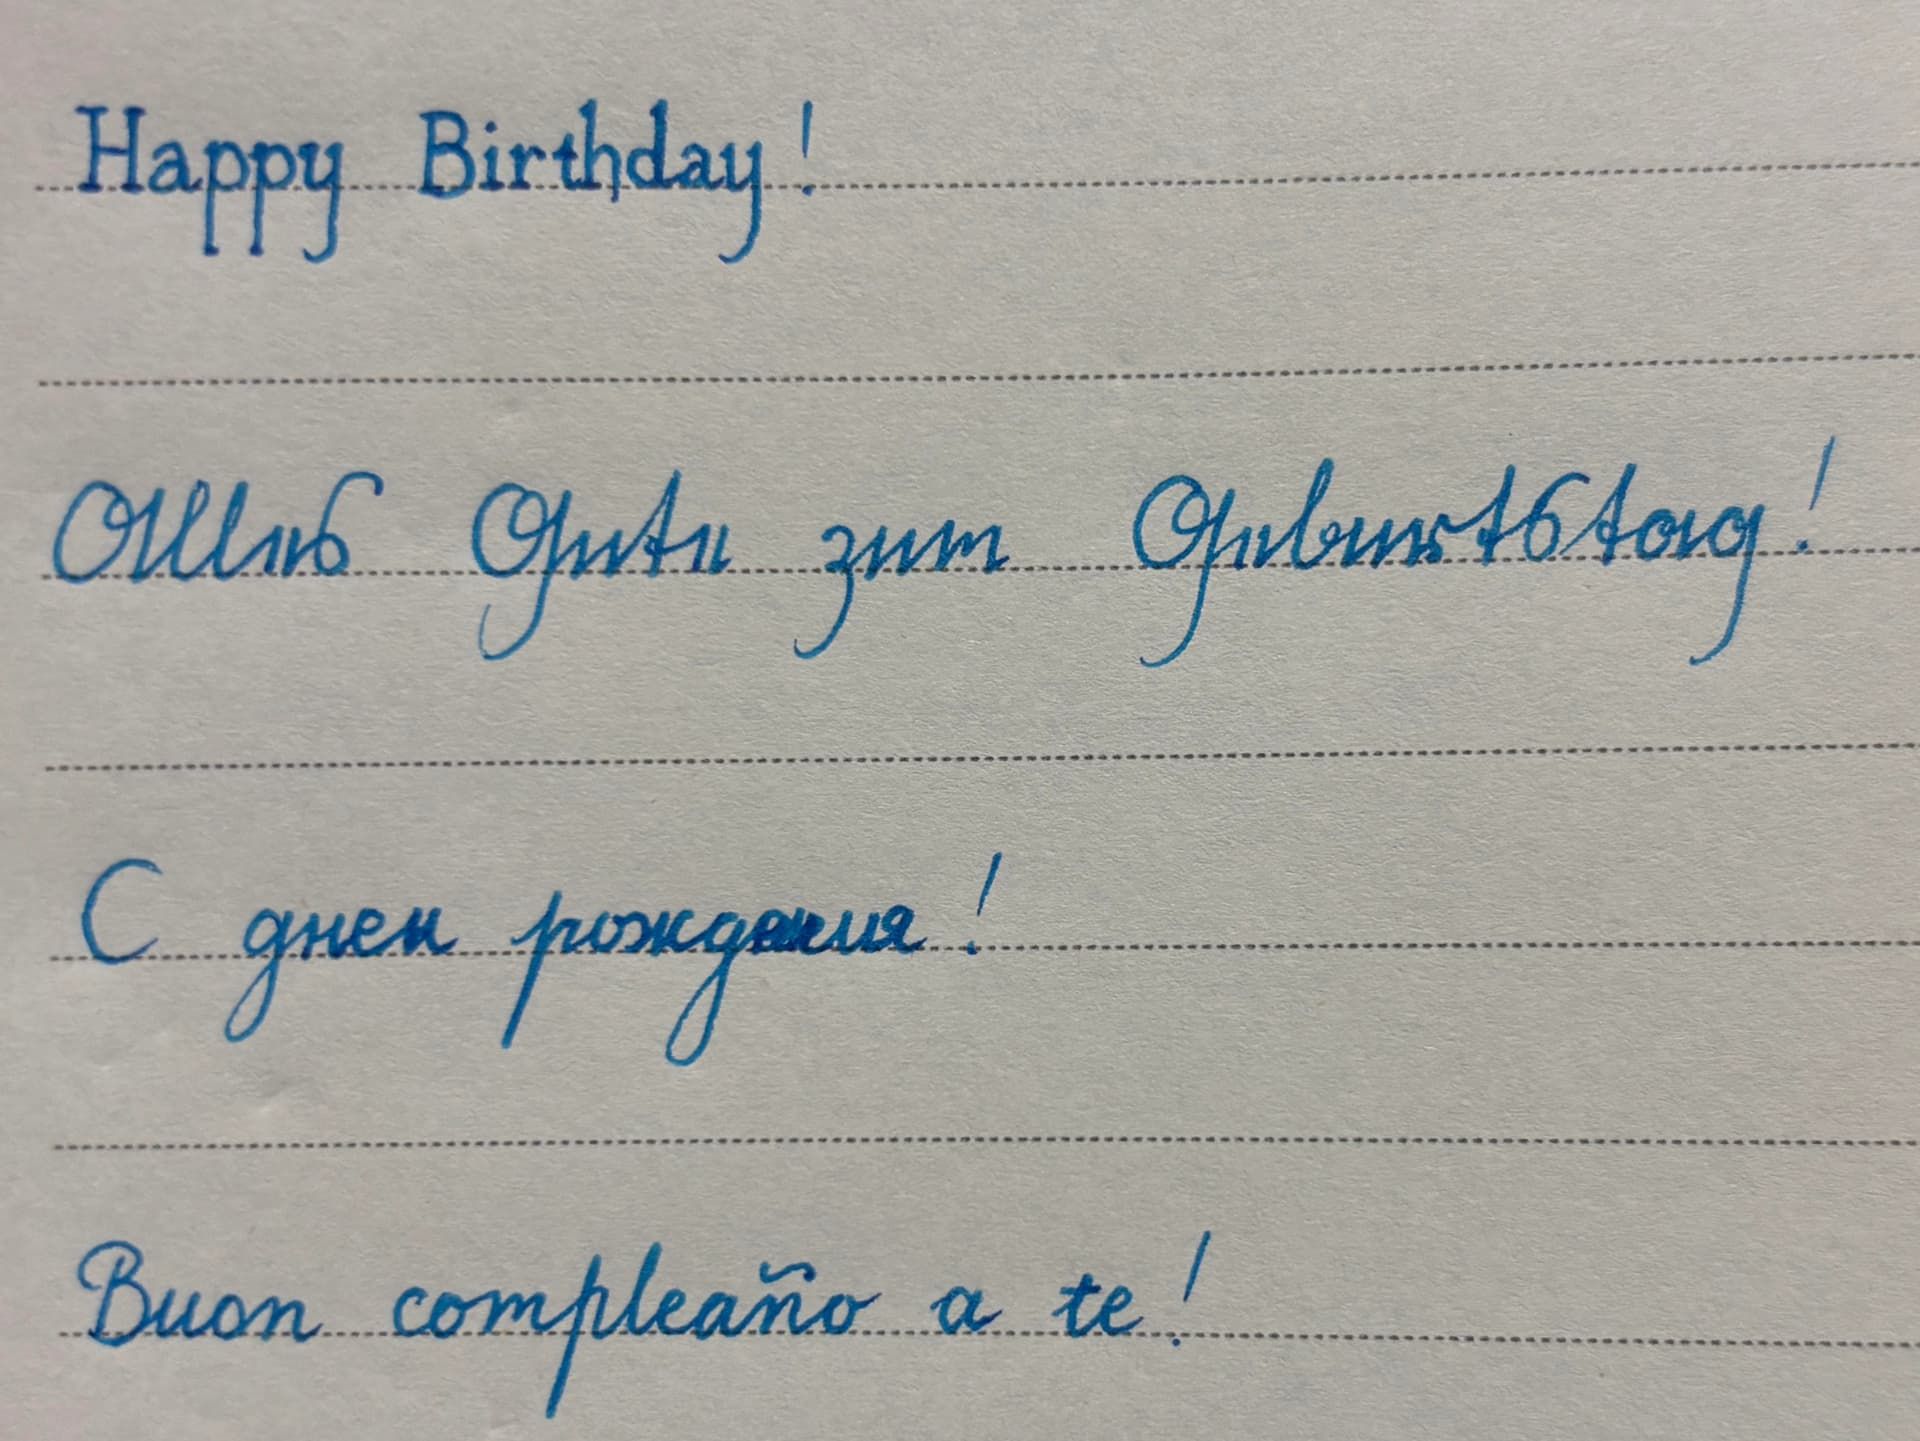 Happy Birthday!
Alles Gute zum Geburtstag!
С днем рождения!
Buon compleaño a te!